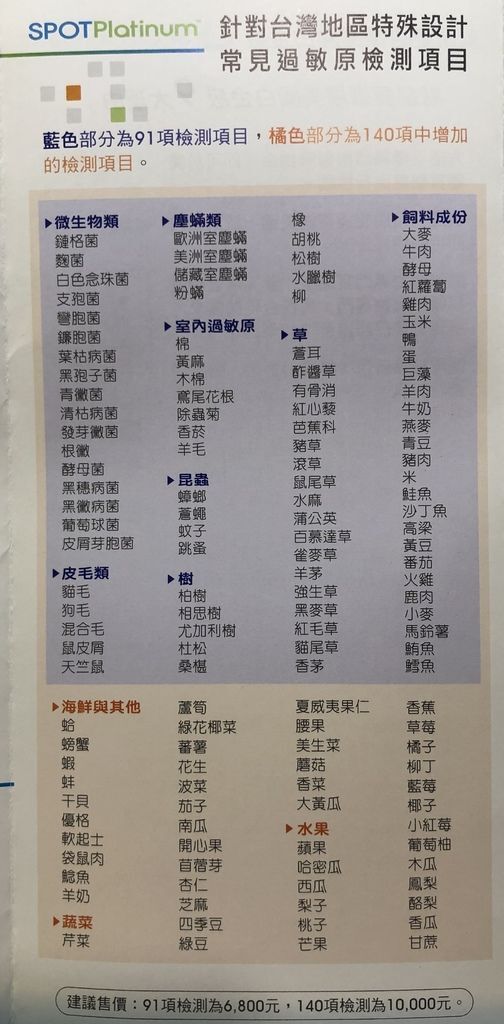 SPOTPlatinum™
針對台灣地區特殊設計
常見過敏原檢測項目
藍色部分為91項檢測項目，橘色部分為140項中增加
的檢測項目。
▶微生物類
鏈格菌
麴菌
白色念珠菌
支孢菌
彎胞菌
鐮胞菌
葉枯病菌
黑孢子菌
青黴菌
清枯病菌
發芽黴菌
根黴
酵母菌
黑穗病菌
黑黴病菌
葡萄球菌
皮屑芽胞菌
▶皮毛類
貓毛
狗毛
混合毛
鼠皮屑
天竺鼠
▶塵蟎類
歐洲室塵蟎
美洲室塵蟎
儲藏室塵蟎
粉蟎
▶室內過敏原
棉
黃麻
木棉
鳶尾花根
除蟲菊
香菸
羊毛
▶昆蟲
蟑螂
蒼蠅
蚊子
跳蚤
▶樹
柏樹
相思樹
尤加利樹
杜松
桑椹
橡
胡桃
松樹
水臘樹
柳
▶草
蒼耳
酢醬草
有骨消
紅心藜
芭蕉科
豬草
滾草
鼠尾草
水麻
蒲公英
百慕達草
雀麥草
羊茅
強生草
黑麥草
紅毛草
貓尾草
香茅
▶飼料成份
大麥
牛肉
酵母
紅蘿蔔
雞肉
玉米
鴨
蛋
巨藻
羊肉
牛奶
燕麥
青豆
豬肉
米
鮭魚
沙丁魚
高粱
黃豆
番茄
火雞
鹿肉
小麥
馬鈴薯
鮪魚
鱈魚
▶海鮮與其他
蛤
螃蟹
蝦
蚌
干貝
優格
軟起士
袋鼠肉
鯰魚
羊奶
▶蔬菜
芹菜
蘆筍
綠花椰菜
蕃薯
花生
波菜
茄子
南瓜
開心果
苜蓿芽
杏仁
芝麻
四季豆
綠豆
夏威夷果仁
腰果
美生菜
蘑菇
香菜
大黃瓜
▶水果
蘋果
哈密瓜
西瓜
梨子
桃子
芒果
香蕉
草莓
橘子
柳丁
藍莓
椰子
小紅莓
葡萄柚
木瓜
鳳梨
酪梨
香瓜
甘蔗
建議售價：91項檢測為6,800元，140項檢測為10,000元。